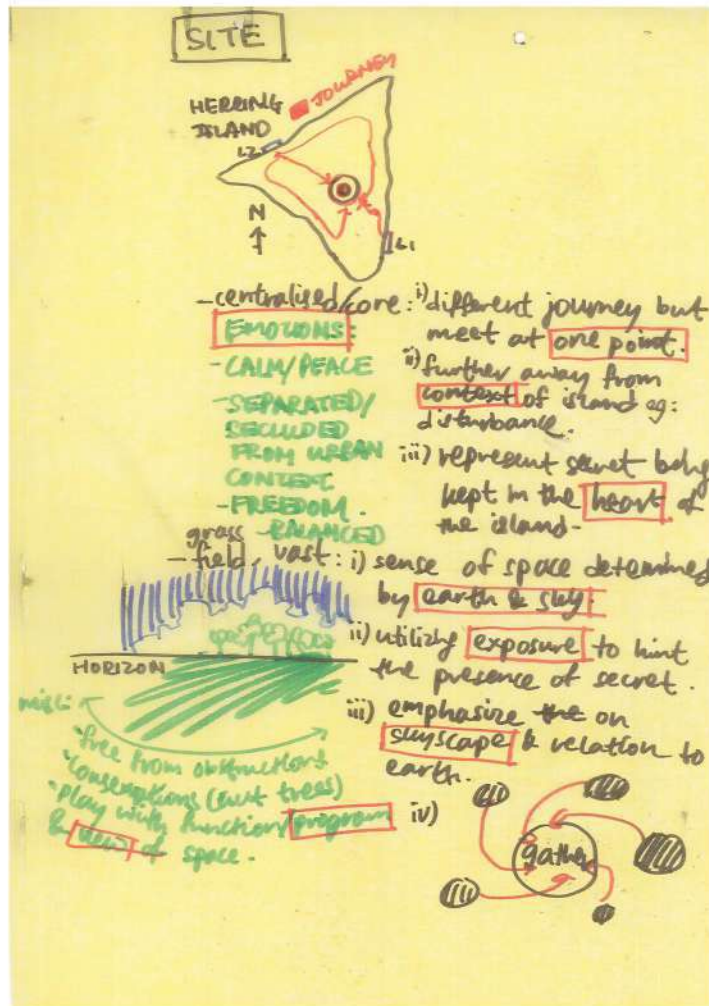 SITE
JOURNEY
HERRING
ISLAND
L2
N
L1
- centralised/core: i) different journey but
meet at one point.
ii) further away from
context of island eg:
disturbance.
iii) represent secret being
kept in the heart of
the island-
EMOTIONS:
- CALM/PEACE
- SEPARATED/
SECLUDED
FROM URBAN
CONTEXT
- FREEDOM.
- BALANCED
grass
- field, vast: i) sense of space determined
by earth & sky.
ii) utilizing exposure to hint
the presence of secret.
iii) emphasize the on
skyscape & relation to
earth.
iv)
HORIZON
• free from obstructions
• (cut trees)
• play with function/program
& view of space.
gather